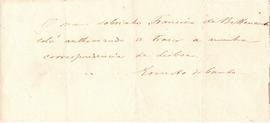 O meu sobrinho Francisco de Bettencourt
está authorisado a tirar a minha
correspondencia de Lisboa
Ernesto do Canto